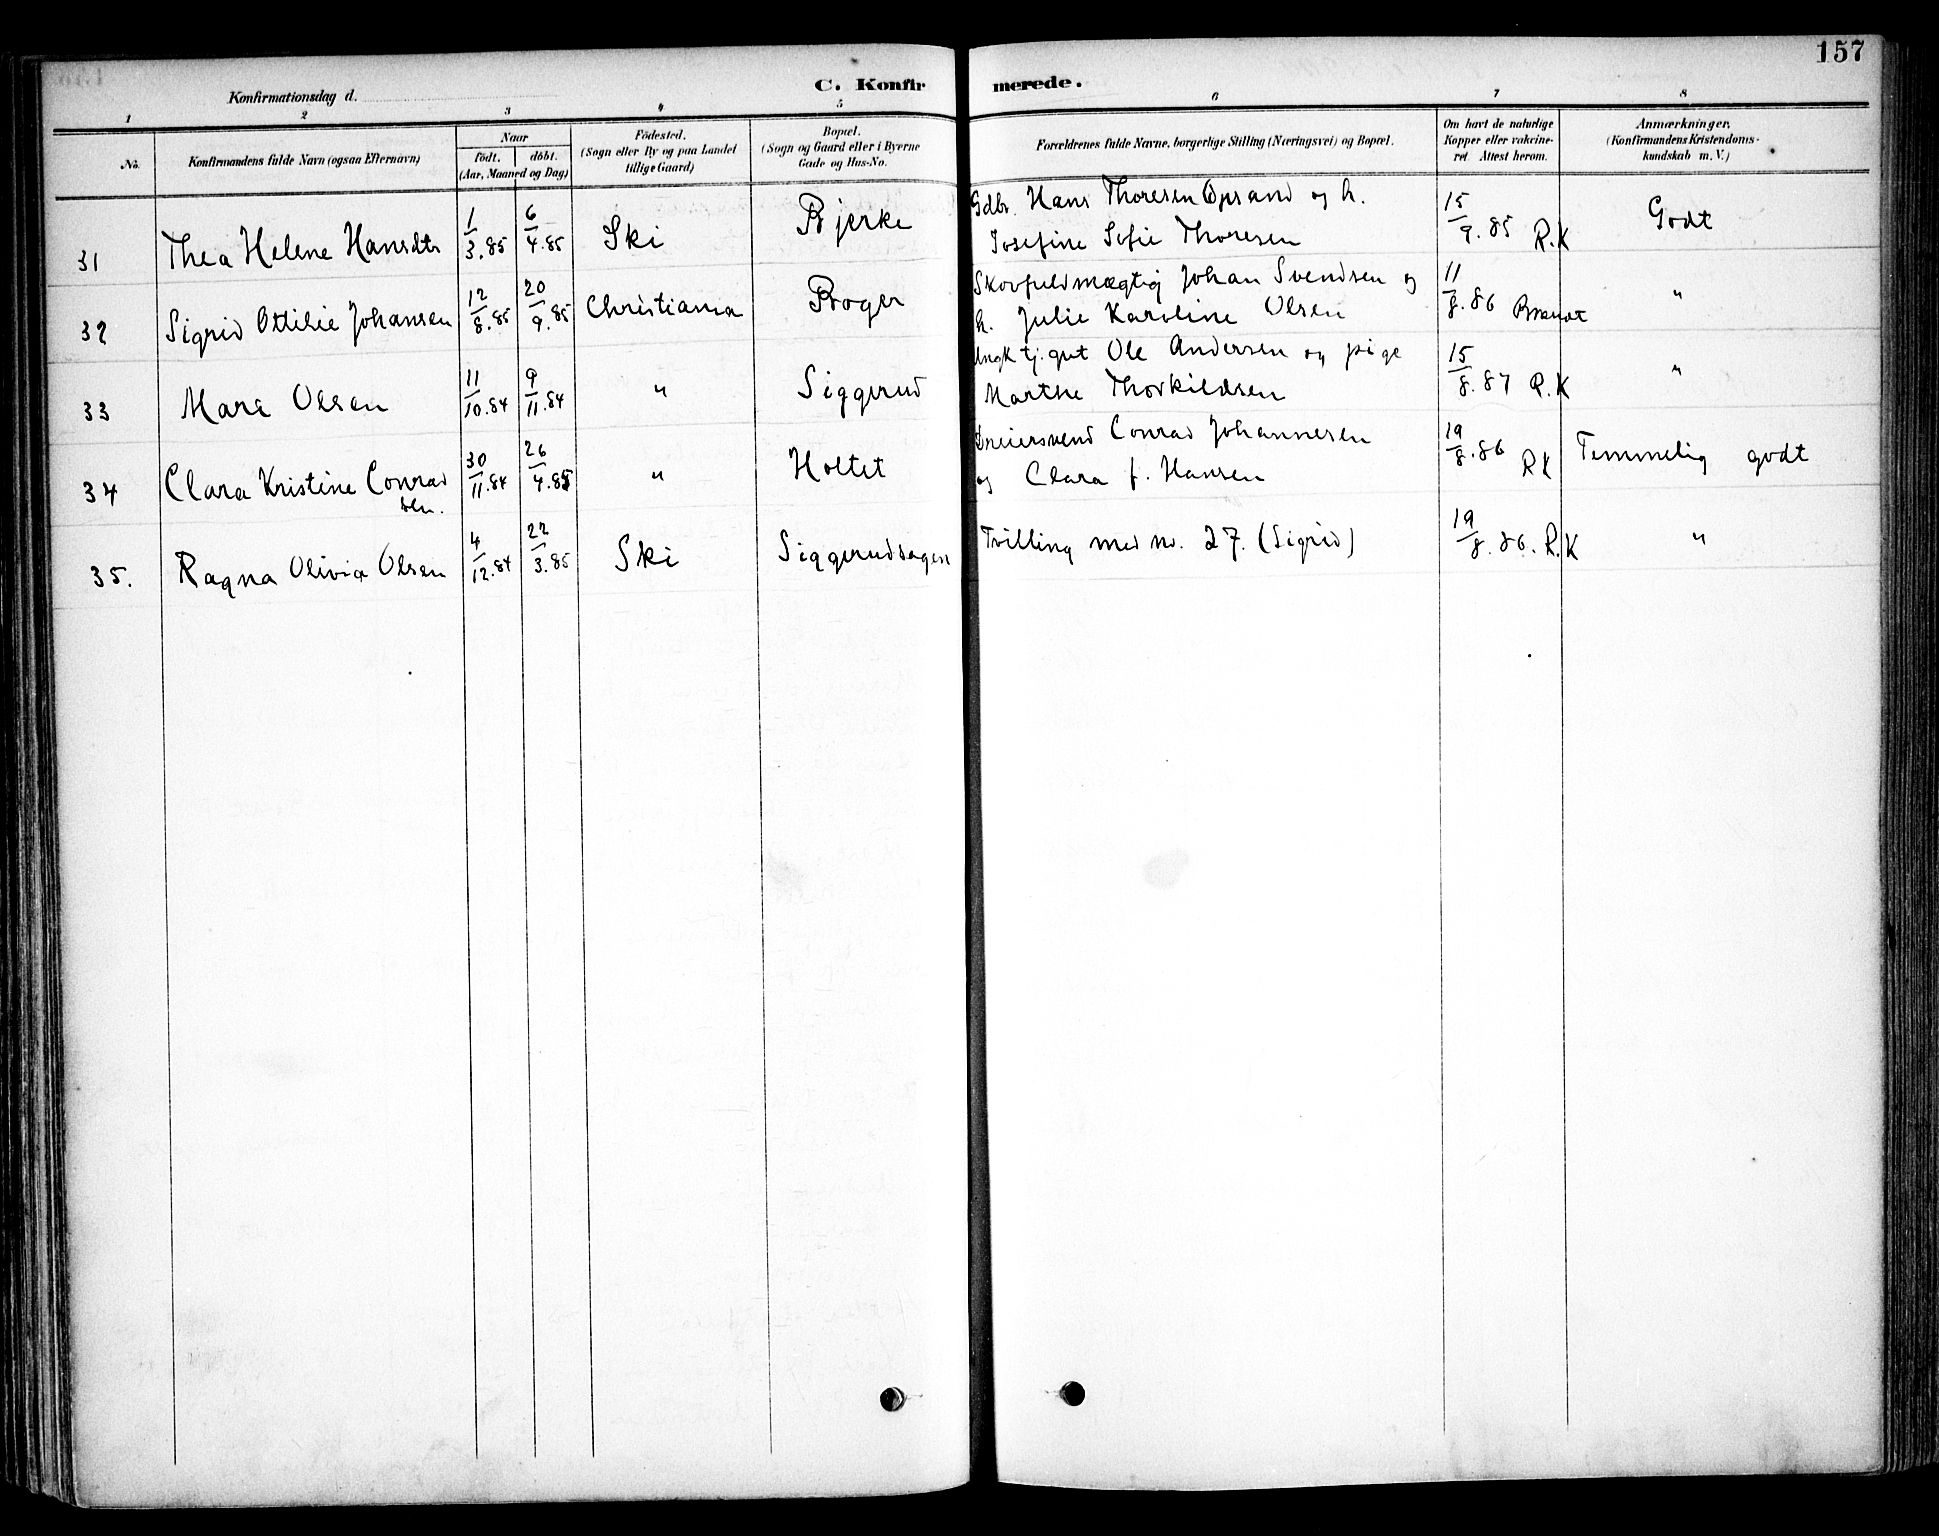 157
C. Konfirmerede.
Konfirmationsdag d.
1 2 3 4 5 6 7 8
No. Konfirmandens fulde Navn (ogsaa Efternavn) Naar födt. döbt. (Aar, Maaned og Dag) Födested. (Sogn eller By og paa Landet tillige Gaard) Bopæl. (Sogn og Gaard eller i Byerne Gade og Hus-No. Forældrenes fulde Navne, borgerlige Stilling (Næringsvei) og Bopæl. Om havt de naturlige Kopper eller vakcineret. Attest herom. Anmærkninger. (Konfirmandens Kristendomskundskab m. V.)
31 Thea Helene Hansdtr 1/3.85 6/4.85 Ski Bjerke Gdbr. Hans Thoresen Opsand og h.
Josefine Sofie Thoresen 15/9.85 R.K Godt
32 Sigrid Ottilie Johansen 12/8.85 20/9.85 Christiania Roger Skovfuldmægtig Johan Svendsen og
h. Julie Karoline Olsen 11/8.86 Brandt "
33 Mara Olsen 11/10.84 9/11.84 " Siggerud Ungk tj.gut Ole Andersen og pige
Marthe Thorkildsen 15/8.87 R.K "
34 Clara Kristine Conrad
sen. 30/11.84 26/4.85 " Holtet Dreiersvend Conrad Johannesen
og Clara f. Hansen 19/8.86 RK Temmelig godt
35. Ragna Olivia Olsen 4/12.84 22/3.85 Ski Siggerudsagen Tvilling med no. 27. (Sigrid) 19/8.86. R.K "